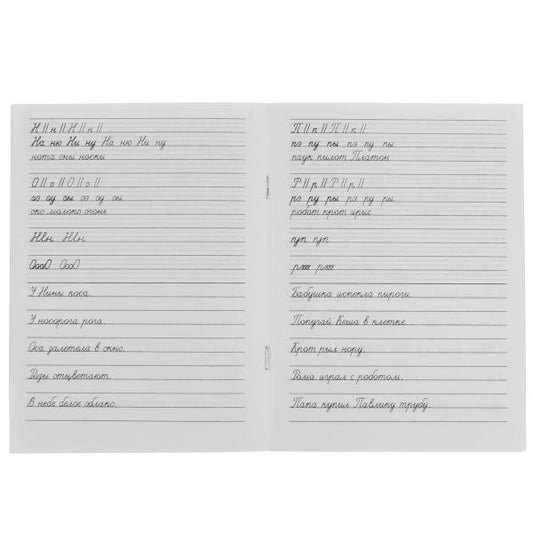 Н || н || Н || н ||
На ню Ни ну На ню Ни ну
нота сны носки
О || о || О || о ||
оэ оу оы оэ оу оы
око молоко огонь
У Нины коса.
У носорога рога.
Оса залетела в окно.
Розы отцветают.
В небе белое облако.
П || п || П || п ||
пэ пу пы пэ пу пы
паук пилот Платон
Р || р || Р || р ||
рэ ру ры рэ ру ры
робот крот ирис
Бабушка испекла пироги.
Попугай Кеша в клетке.
Крот рыл нору.
Рома играл с роботом.
Папа купил Павлику трубу.